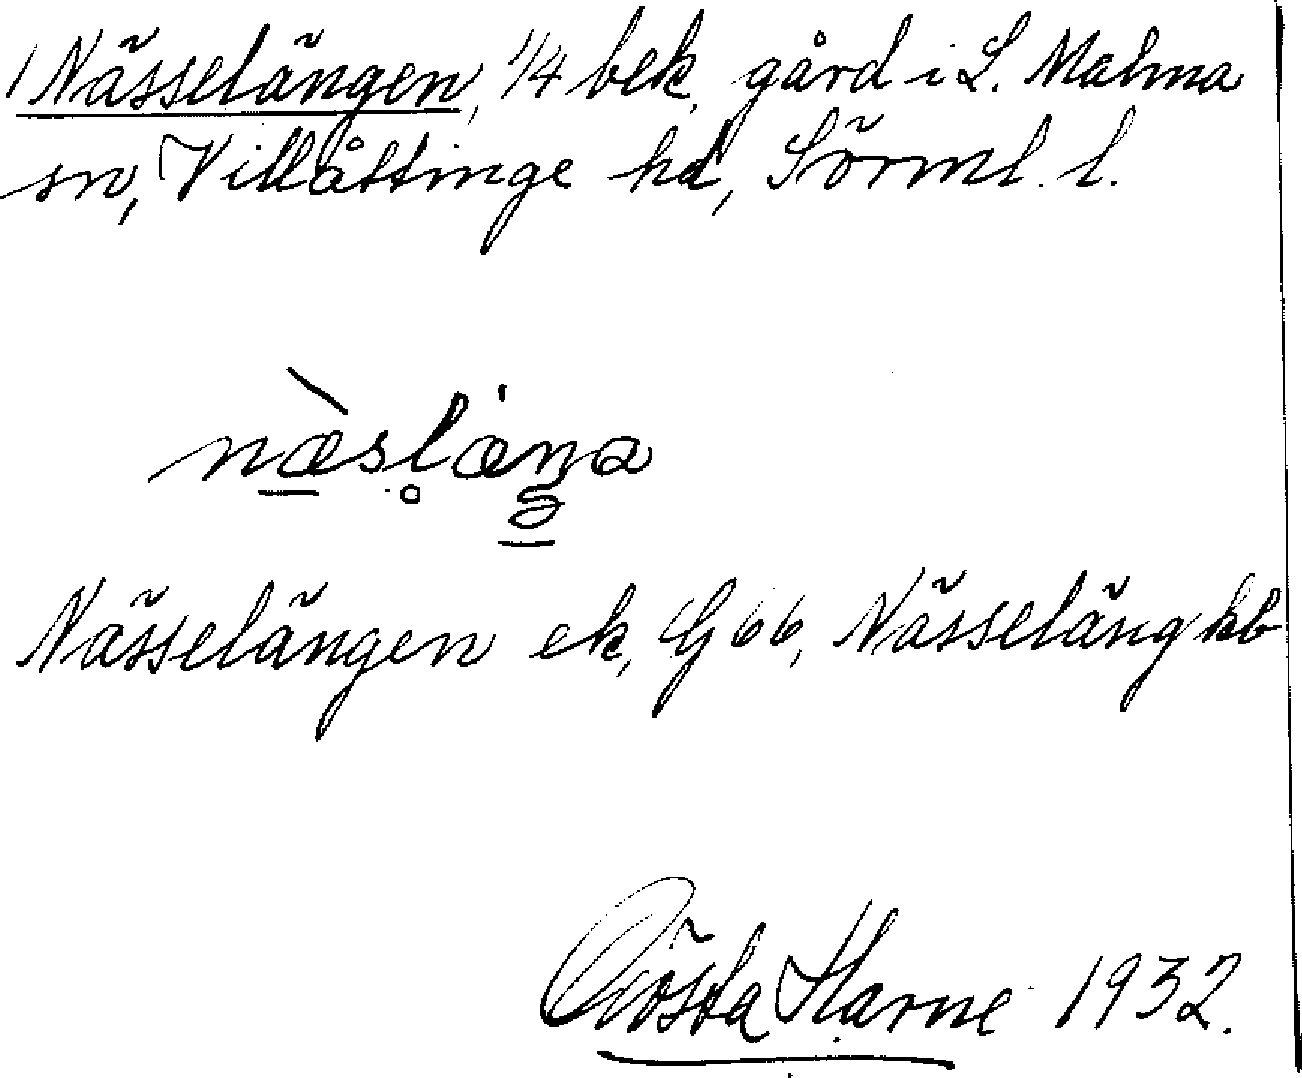 1 Nässelängen, 1/4 bek. gård i L. Malma
sn, Villåttinge hd, Sörml. l.
næ̀slæŋa
Nässelängen ek, G 66, Nässeläng kb
Gösta Harne 1932.